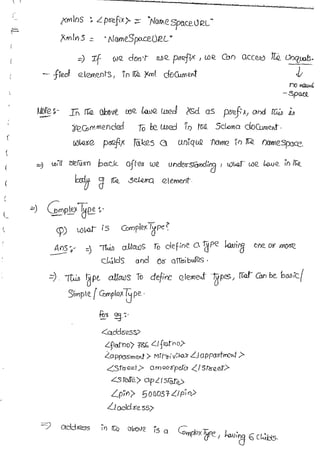 xmlns : <prefix> = "NameSpaceURL"
xmlns = "NameSpaceURL"
=> If we don't use prefix, we can access the Unquali-
fied elements, in the xml document
no name
-space
Note:- In the above we have used xsd as prefix, and this is
recommended to be used in the Schema document.
where prefix takes a unique name in the namespace.
=> will return back after we understanding, what we have in the
body of the schema element.
=> Complex Type :-
Q) what is Complex Type?
Ans:- => This allows to define a type having one or more
childs and or attributes.
=> This type allows to define element types, that can be basic/
Simple / Complex Type.
for eg:-
<address>
<flatno> 786 </flatno>
<appartment> </appartment>
<street> ameerpeta </street>
<state> ap </state>
<pin> 500037 </pin>
</address>
=> address in the above is a Complex Type, having 6 childs.